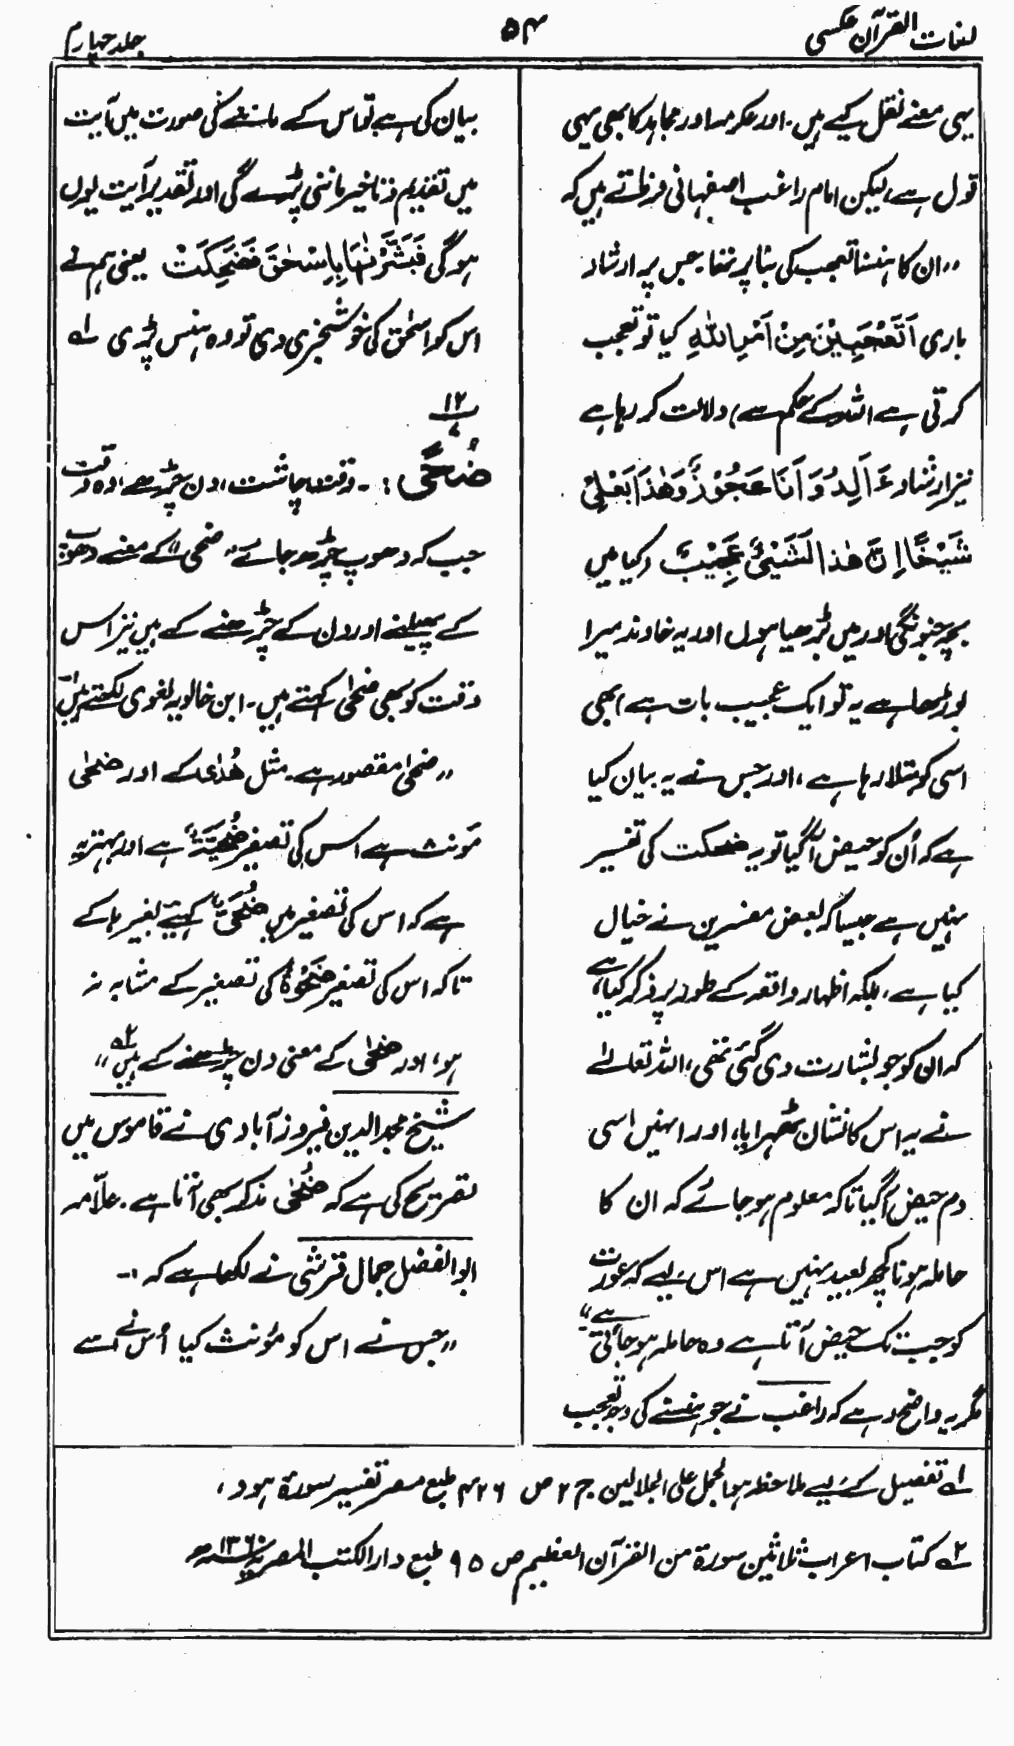 لغات القرآن عکسی
۵۴
جلد چہارم
یہی معنے نقل کیے ہیں۔ اور عکرمہ اور مجاہد کا بھی یہی
قول ہے، لیکن امام راغب اصفہانی فرماتے ہیں کہ
”ان کا ہنسنا تعجب کی بنا پر تھا۔ جس پر ارشاد
باری اَتَعْجَبِیْنَ مِنْ اَمْرِ اللّٰہِ کیا تو تعجب
کرتی ہے اللہ کے حکم سے) دلالت کر رہا ہے
نیز ارشاد ءَاَلِدُ وَ اَنَا عَجُوْزٌ وَّھٰذَا بَعْلِیْ
شَیْخًا اِنَّ ھٰذَا لَشَیْئٌ عَجِیْبٌ (کیا میں
بچہ جنوں گی اور میں بڑھیا ہوں اور یہ خاوند میرا
بوڑھا ہے یہ تو ایک عجیب بات ہے) بھی
اسی کو بتلا رہا ہے، اور جس نے یہ بیان کیا
ہے کہ اُن کو حیض آ گیا تو یہ ضحکت کی تفسیر
نہیں ہے جیسا کہ بعض مفسرین نے خیال
کیا ہے، بلکہ اظہار واقعہ کے طور پر ذکر کیا ہے،
کہ ان کو جو بشارت دی گئی تھی، اللہ تعالےٰ
نے یہ اس کا نشان ٹھہرایا، اور انہیں اسی
دم حیض آ گیا تاکہ معلوم ہو جائے کہ ان کا
حاملہ ہونا کچھ بعید نہیں ہے اس لیے کہ عورت
کو جب تک حیض آتا ہے وہ حاملہ ہو جاتی ہے“
مگر یہ واضح رہے کہ راغب نے جو ہنسنے کی وجہ تعجب
بیان کی ہے تو اس کے ماننے کی صورت میں آیت
میں تقدیم و تاخیر ماننی پڑے گی اور تقدیر آیت یوں
ہو گی فَبَشَّرْنٰھَا بِاِسْحٰقَ فَضَحِکَتْ یعنی ہم نے
اس کو اسحٰق کی خوشخبری دی تو وہ ہنس پڑی ۱ے
۱۲
۷
ضُحًی :۔ وقت چاشت، دن چڑھے، وہ وقت
جب کہ دھوپ چڑھ جائے ”ضحی“ کے معنے دھوپ
کے پھیلنے اور دن کے چڑھنے کے ہیں نیز اس
وقت کو بھی ضحٰی کہتے ہیں۔ ابن خالویہ لغوی لکھتے ہیں:
”ضحٰی مقصور ہے۔ مثل ھُدًی کے اور ضحٰی
مؤنث ہے اس کی تصغیر ضُحَیَّۃٌ ہے اور بہتر یہ
ہے کہ اس کی تصغیر میں ضُحَیٌّ کہیے بغیر ہا کے
تاکہ اس کی تصغیر ضَحْوَۃٌ کی تصغیر کے مشابہ نہ
ہو، اور ضحٰی کے معنی دن چڑھنے کے ہیں ۲ے“
شیخ مجد الدین فیروز آبادی نے قاموس میں
تصریح کی ہے کہ ضُحٰی مذکر بھی آتا ہے۔ علّامہ
ابو الفضل جمال قرشی نے لکھا ہے کہ :۔
”جس نے اس کو مؤنث کیا اُس نے اسے
۱ے تفصیل کے لیے ملاحظہ ہو الجمل علی الجلالین ج ۲ ص ۴۲۶ طبع مصر تفسیر سورۃ ہود،
۲ے کتاب اعراب ثلاثین سورۃ من القرآن العظیم ص ۹۵ طبع دار الکتب المصریہ ۱۳۶۰ھ